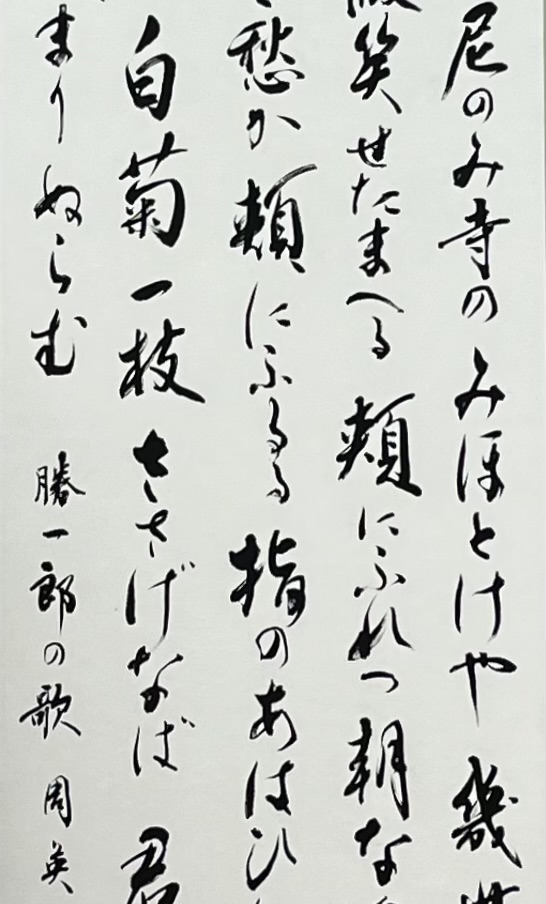 尼のみ寺のみほとけや 幾世
微笑せたまへる 頬にふれつ 朝な
愁か 頬にふるる 指のあはひ
白菊一枝 ささげなば 君
まりぬらむ 勝一郎の歌 周英